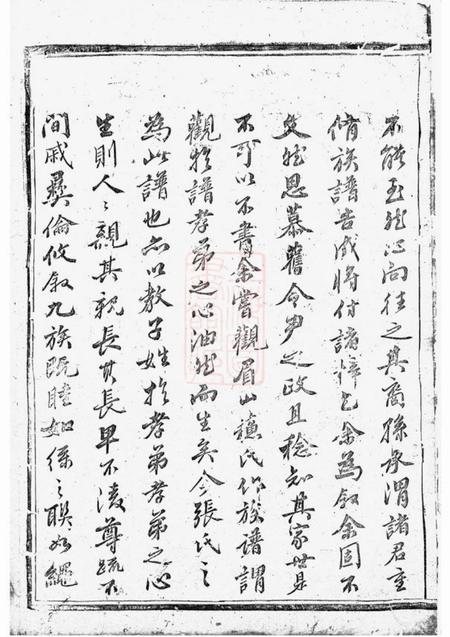 不能至然心向往之其裔孫承渭諸君重
脩族譜告成將付諸梓乞余為叙余固不
文然思慕舊令尹之政且稔知其家世是
不可以不書余嘗觀眉山蘓氏作族譜謂
觀於譜孝弟之心油然而生矣今張氏之
為此譜也亦以教子姓於孝弟孝弟之心
生則人〻親其親長其長卑不凌尊疏不
間戚彜倫攸叙九族既睦如絲之聯如繩